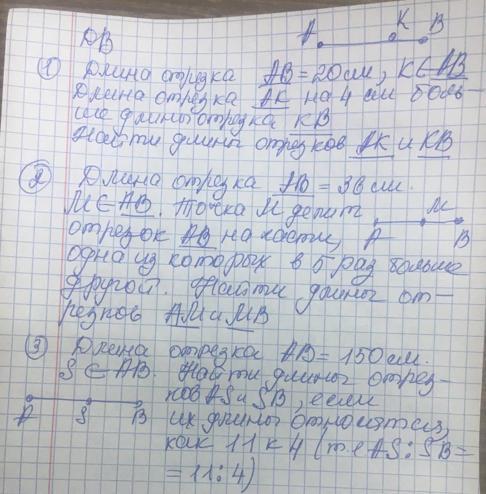 ДВ
A K B
① Длина отрезка AB = 20 см, K ∈ AB
Длина отрезка AK на 4 см боль-
ше длины отрезка KB
Найти длины отрезков AK и KB
② Длина отрезка AB = 36 см.
M ∈ AB. Точка M делит
отрезок AB на части,
A M B
одна из которых в 5 раз больше
другой. Найти длины от-
резков AM и MB
③ Длина отрезка AB = 150 см.
S ∈ AB. Найти длины отрез-
ков AS и SB, если
A S B
их длины относятся,
как 11 к 4 (т.е AS : SB =
= 11 : 4)